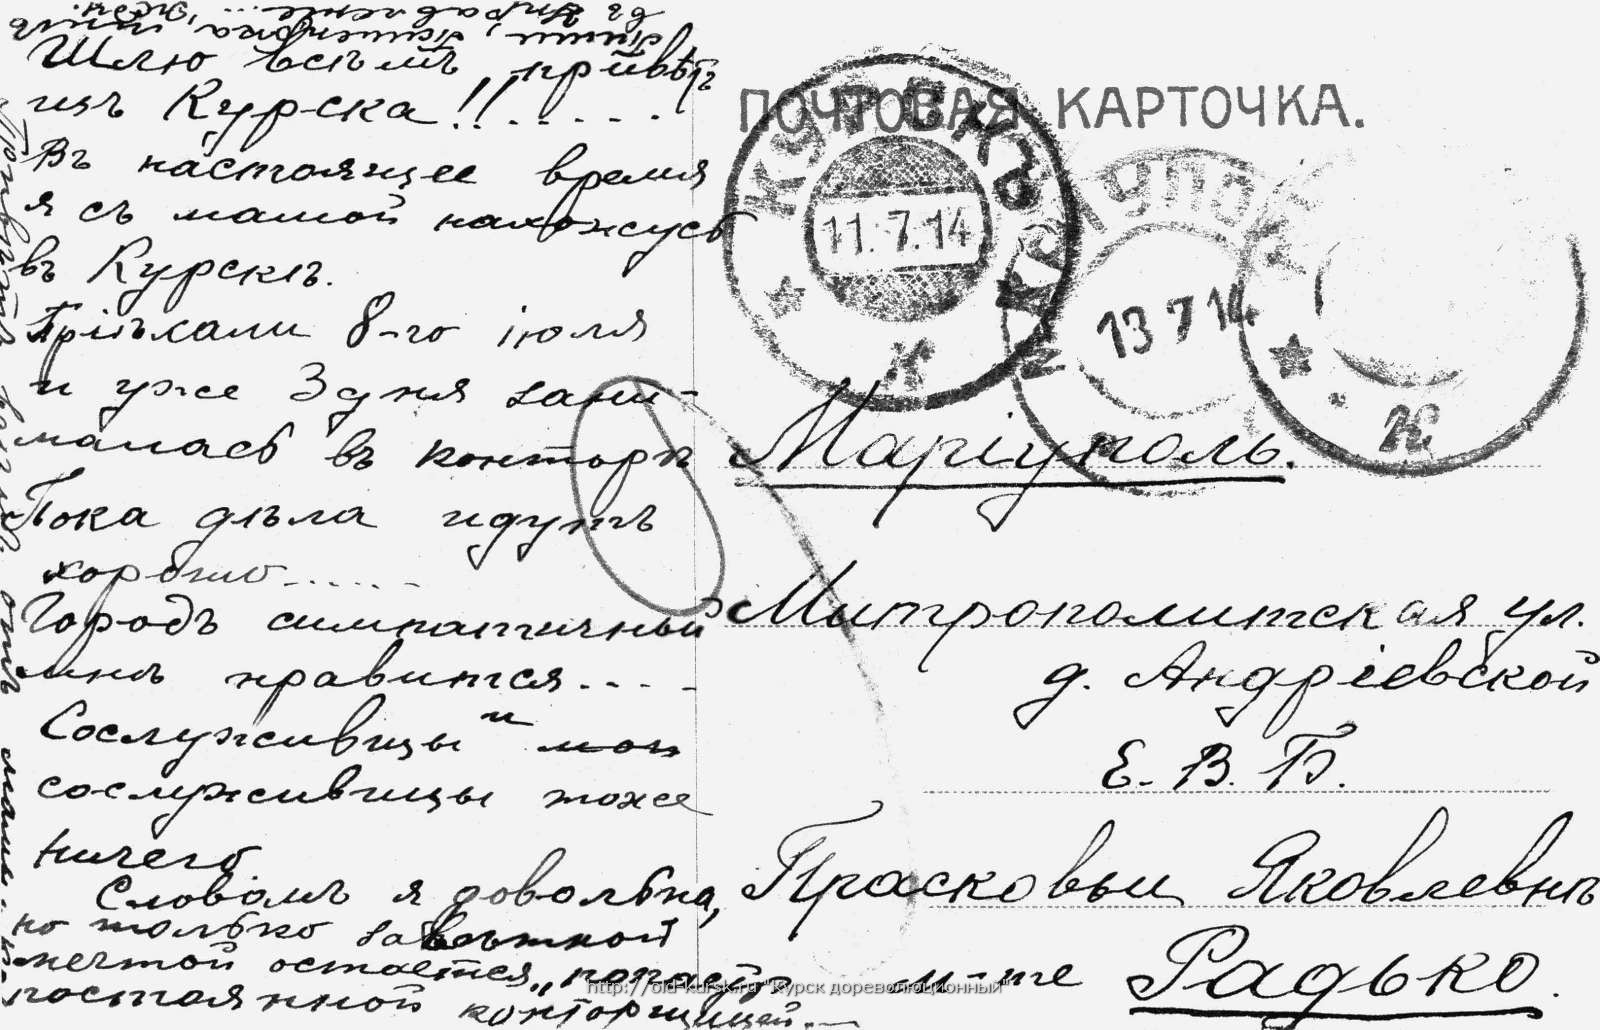 Шлю всѣмъ привѣтъ
изъ Курска!!......
Въ настоящее время
я съ мамой нахожусь
въ Курскѣ.
Пріѣхали 8-го іюля
и уже 3 дня зани-
малась въ конторѣ
Пока дѣла идутъ
хорошо......
Городъ симпатичный
мнѣ нравится....
Сослуживцы и мои
сослуживицы тоже
ничего
Словомъ я довольна,
но только завѣтной
мечтой остается „попасть
постоянной конторщицей.
ПОЧТОВАЯ КАРТОЧКА.
КУРСКЪ
11.7.14
МАРІУПОЛ
13 7 14
Маріуполь.
Митрополитская ул.
д. Андріевской
Е. В. Б.
Прасковьи Яковлевнѣ
м-ше Радько.
http://old-kursk.ru "Курск дореволюционный"